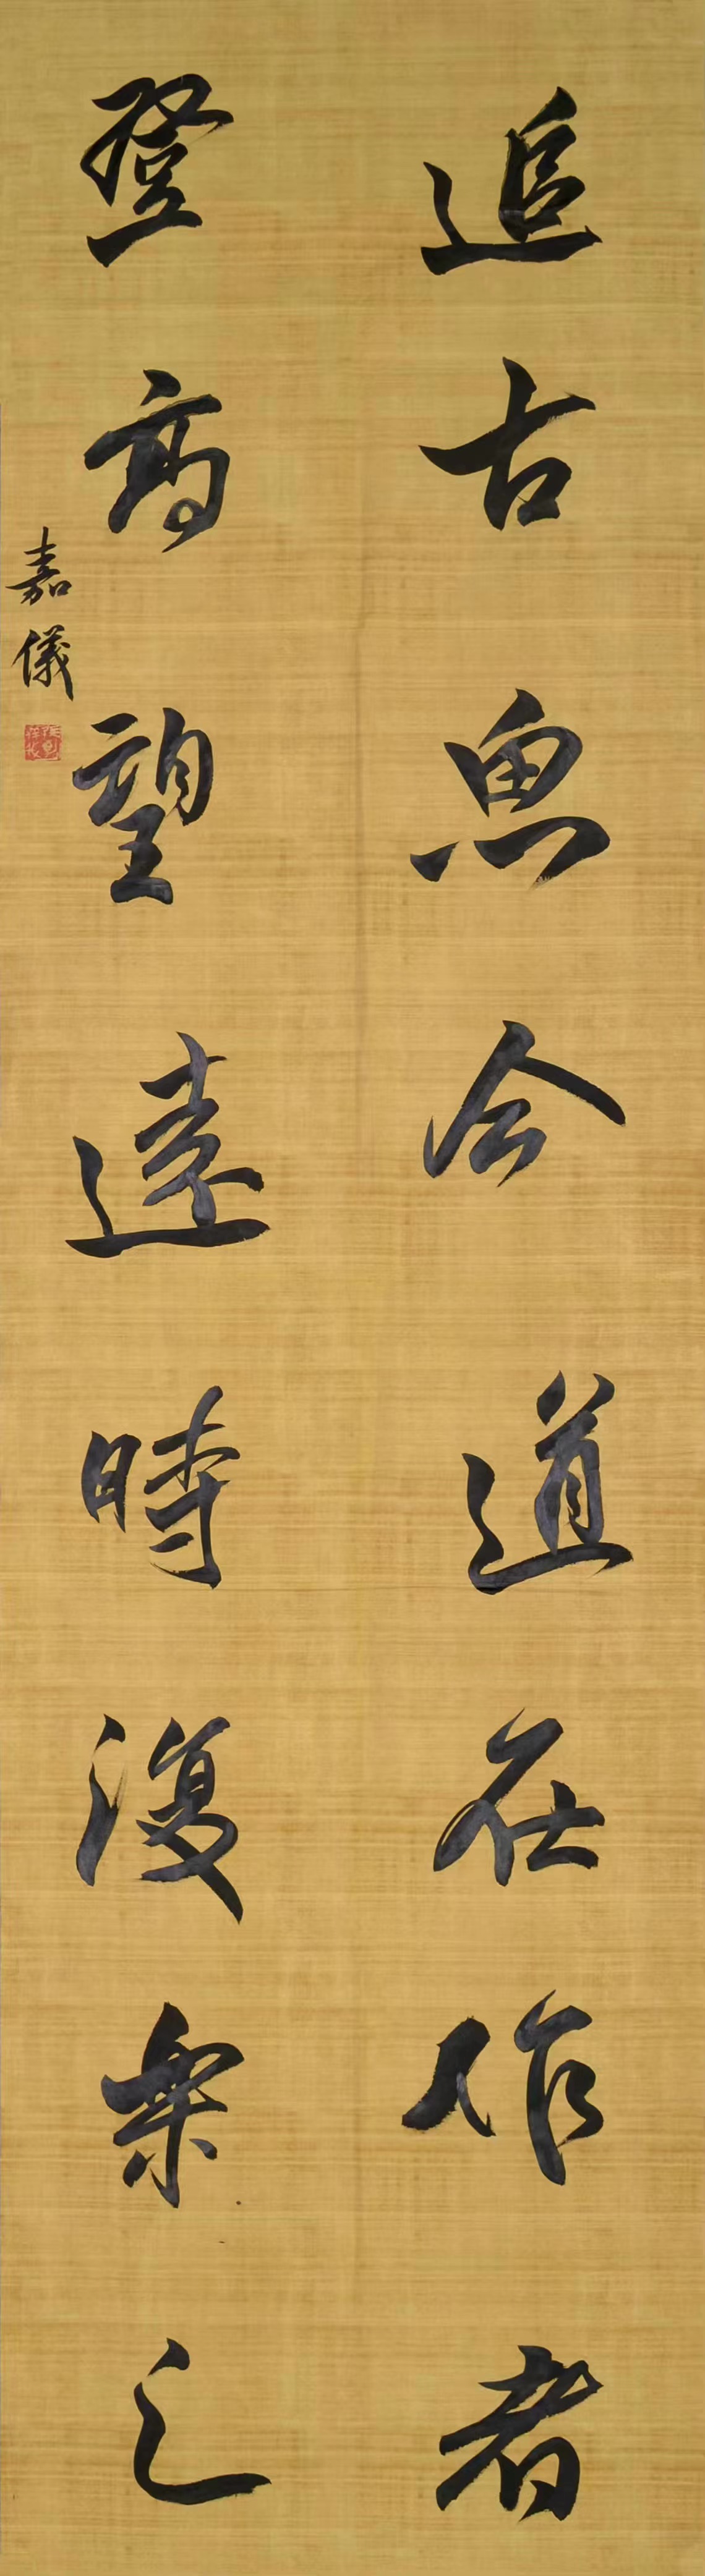 追古魚今道在作者
登高望遠時復樂之
嘉儀